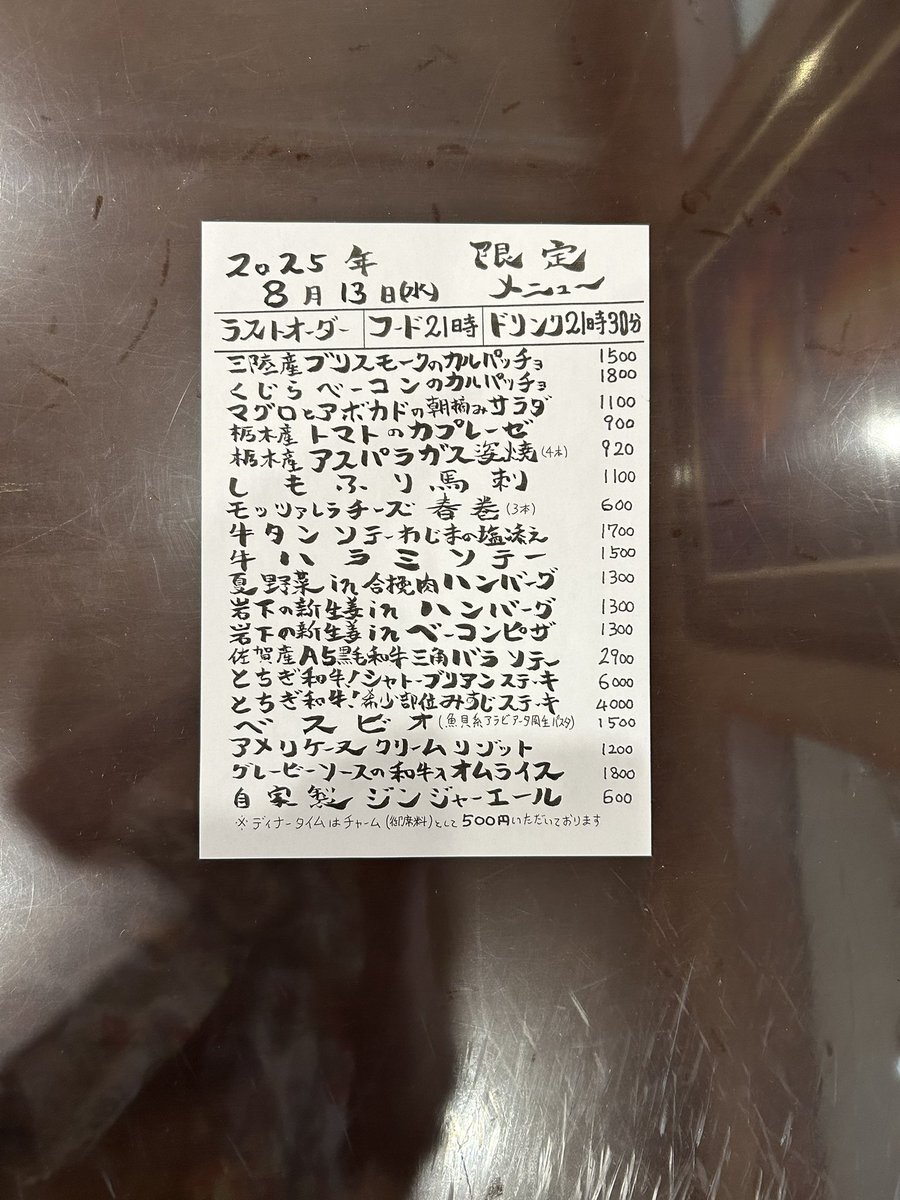 2025年 限定
8月13日(水) メニュー
ラストオーダー フード21時 ドリンク21時30分
三陸産ブリスモークのカルパッチョ 1500
くじらベーコンのカルパッチョ 1800
マグロとアボカドの朝摘みサラダ 1100
栃木産トマトのカプレーゼ 900
栃木産アスパラガス姿焼(4本) 920
しもふり馬刺 1100
モッツァレラチーズ春巻(3本) 600
牛タンソテーわじまの塩添え 1700
牛ハラミソテー 1500
夏野菜in合挽肉ハンバーグ 1300
岩下の新生姜inハンバーグ 1300
岩下の新生姜inベーコンピザ 1300
佐賀産A5黒毛和牛三角バラソテー 2900
とちぎ和牛!シャトーブリアンステーキ 6000
とちぎ和牛!希少部位みすじステーキ 4000
ベスビオ(魚貝系アラビアータ風生パスタ) 1500
アメリケーヌクリームリゾット 1200
グレービーソースの和牛入オムライス 1800
自家製ジンジャーエール 600
※ディナータイムはチャーム(御席料)として500円いただいております